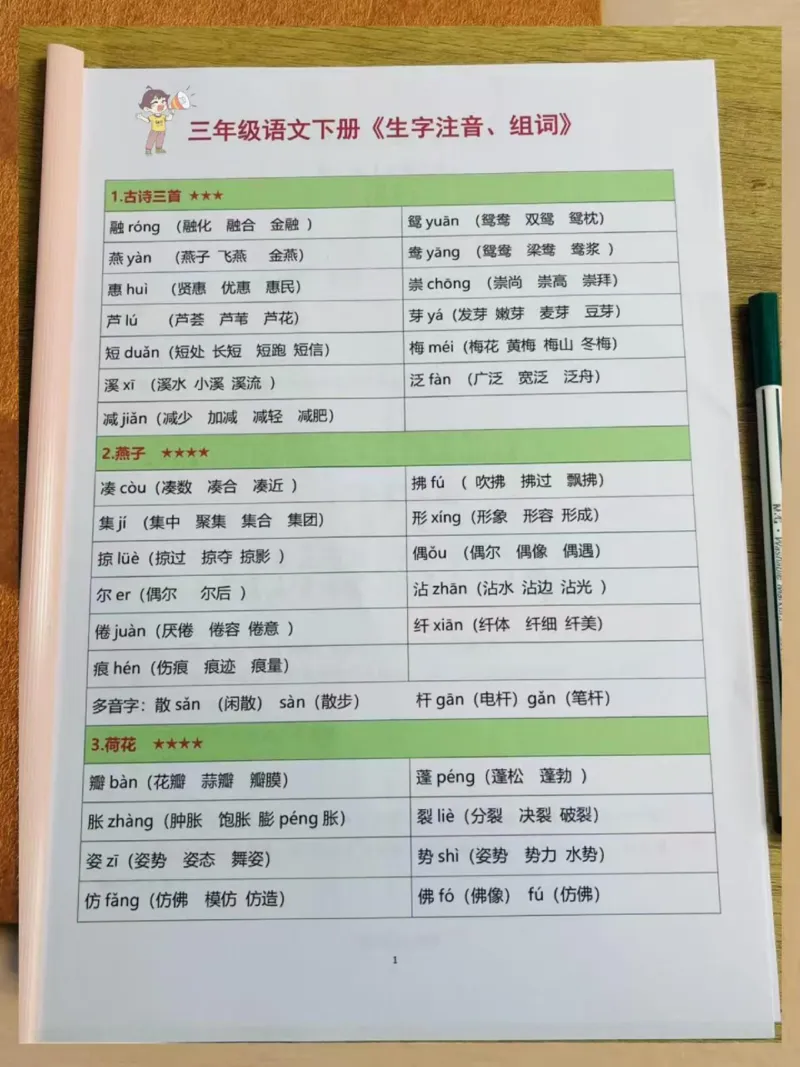 三年级语文下册《生字注音、组词》
1.古诗三首 ★★★
融 róng （融化 融合 金融 ） 鸳 yuān （鸳鸯 双鸳 鸳枕）
燕 yàn （燕子 飞燕 金燕） 鸯 yāng （鸳鸯 梁鸯 鸯浆 ）
惠 huì （贤惠 优惠 惠民） 崇 chōng （崇尚 崇高 崇拜）
芦 lú （芦荟 芦苇 芦花） 芽 yá（发芽 嫩芽 麦芽 豆芽）
短 duǎn（短处 长短 短跑 短信） 梅 méi（梅花 黄梅 梅山 冬梅）
溪 xī （溪水 小溪 溪流 ） 泛 fàn （广泛 宽泛 泛舟）
减 jiǎn（减少 加减 减轻 减肥）
2.燕子 ★★★★
凑 còu（凑数 凑合 凑近 ） 拂 fú （ 吹拂 拂过 飘拂）
集 jí （集中 聚集 集合 集团） 形 xíng（形象 形容 形成）
掠 lüè（掠过 掠夺 掠影 ） 偶ǒu （偶尔 偶像 偶遇）
尔 er（偶尔 尔后 ） 沾 zhān（沾水 沾边 沾光 ）
倦 juàn（厌倦 倦容 倦意 ） 纤 xiān（纤体 纤细 纤美）
痕 hén（伤痕 痕迹 痕量）
多音字：散 sǎn （闲散） sàn（散步） 杆 gān（电杆）gǎn（笔杆）
3.荷花 ★★★★
瓣 bàn（花瓣 蒜瓣 瓣膜） 蓬 péng（蓬松 蓬勃 ）
胀 zhàng（肿胀 饱胀 膨 péng 胀） 裂 liè（分裂 决裂 破裂）
姿 zī（姿势 姿态 舞姿） 势 shì（姿势 势力 水势）
仿 fǎng（仿佛 模仿 仿造） 佛 fó（佛像） fú（仿佛）
1